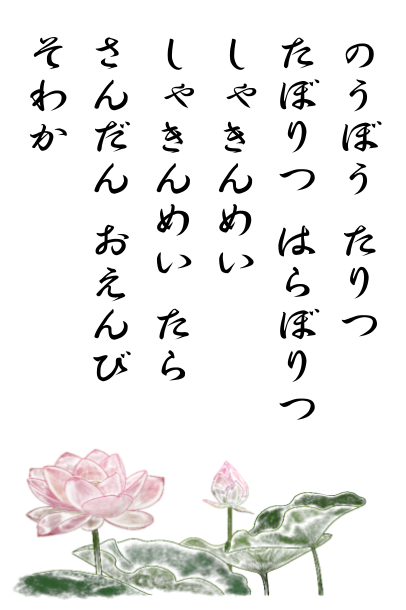 のうぼう たりつ
たぼりつ はらぼりつ
しゃきんめい
しゃきんめい たら
さんだん おえんび
そわか